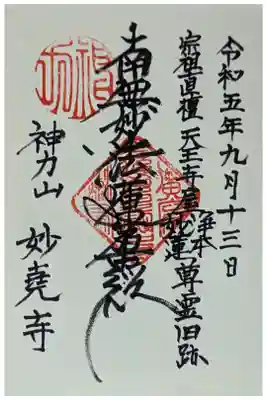 令和五年九月十三日
宗祖直檀 天王寺屋 浄本 妙蓮 尊霊旧跡
南無妙法蓮華経
神力山 妙堯寺